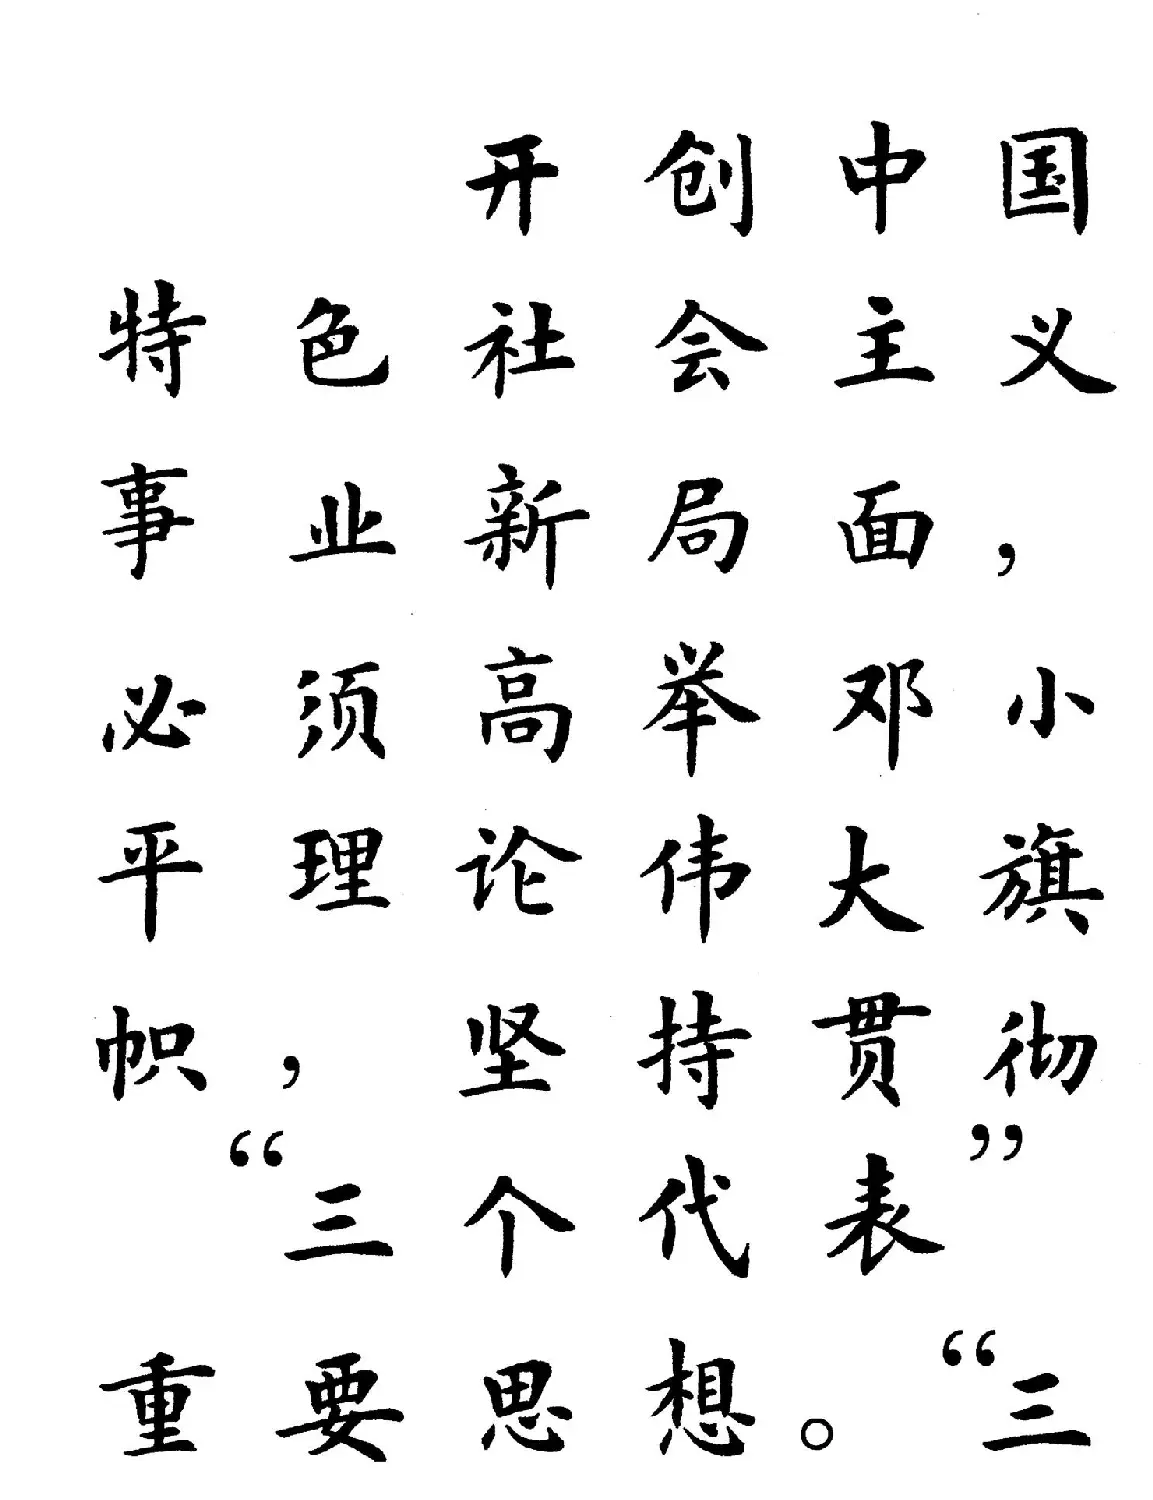 开创中国
特色社会主义
事业新局面，
必须高举邓小
平理论伟大旗
帜，坚持贯彻
“三个代表”
重要思想。“三